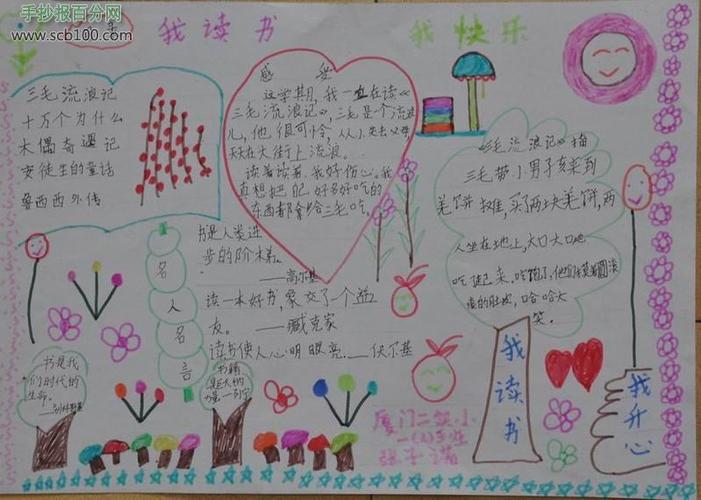 手抄报百分网
www.scb100.com
我读书
我快乐
三毛流浪记
十万个为什么
木偶奇遇记
安徒生的童话
鲁西西外传
感受
这学期，我一直在读《
三毛流浪记》，三毛是个流浪
儿，他很可怜，从小失去父母
天天在大街上流浪。
读着读着，我好伤心。我
真想把 好多好吃的
东西都拿给三毛吃。
《三毛流浪记》描
三毛带小男孩来到
羊饼摊，买两块羊饼，两
人坐在地上，大口大口地
吃起来，吃饱了，他们摸着圆滚
滚的肚皮，哈哈大
笑。
名人名言
书是人类进
步的阶梯。
——高尔基
读一本好书，象交了个益
友。——臧克家
读书使人心明眼亮。——伏尔基
书是我
们时代的
生命。
书籍
是巨大的
力量。—列宁
我读书
我开心
厦门二实小
一(2)